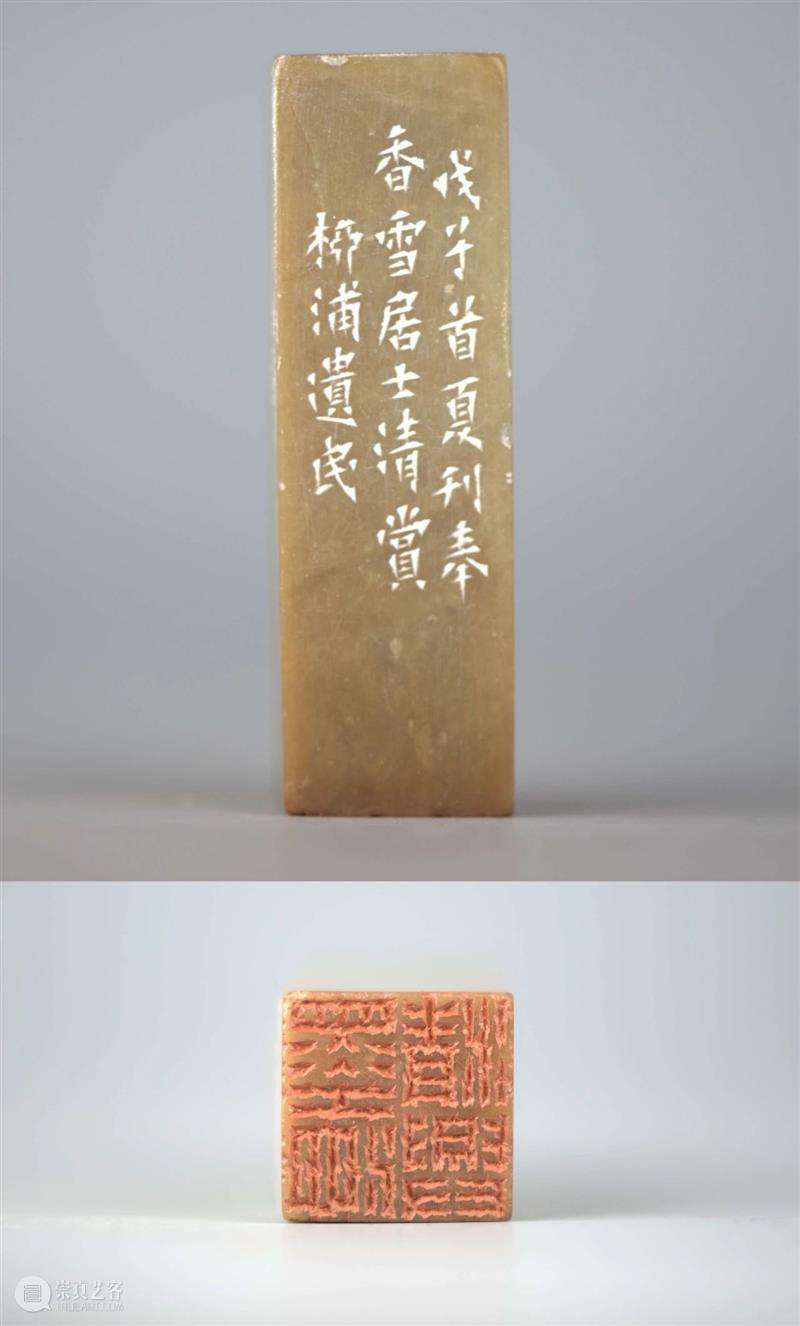 戊子首夏刊奉
香雪居士清賞
柳浦遺民
崇真艺客
TRUEART.COM